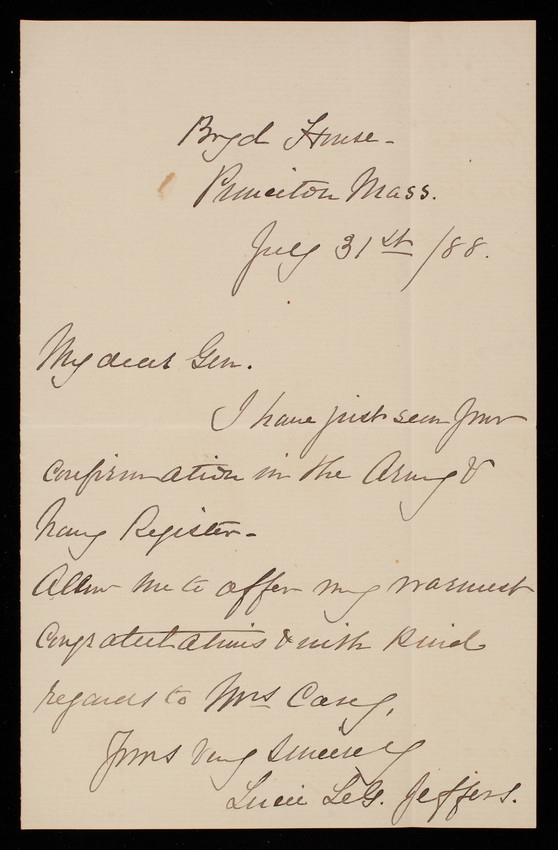 Boyd House -
Princeton Mass.
July 31st /88.
My dear Gen.
I have just seen your
confirmation in the Army &
Navy Register -
Allow me to offer my warmest
congratulations & with kind
regards to Mrs Casey,
Yours very sincerely
Lucie LeG. Jeffers.